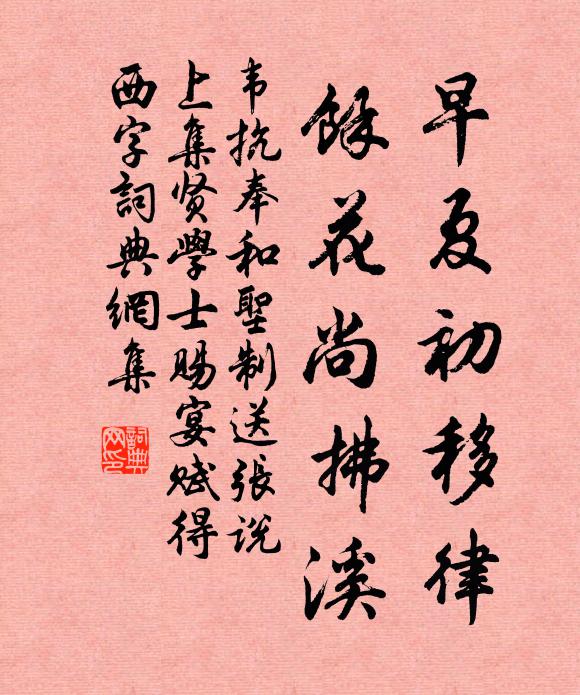 早夏初移律
餘花尚拂溪
韦抗奉和聖制送張说
上集贤學士賜宴赋得
西字詞典網集
詞典
网印